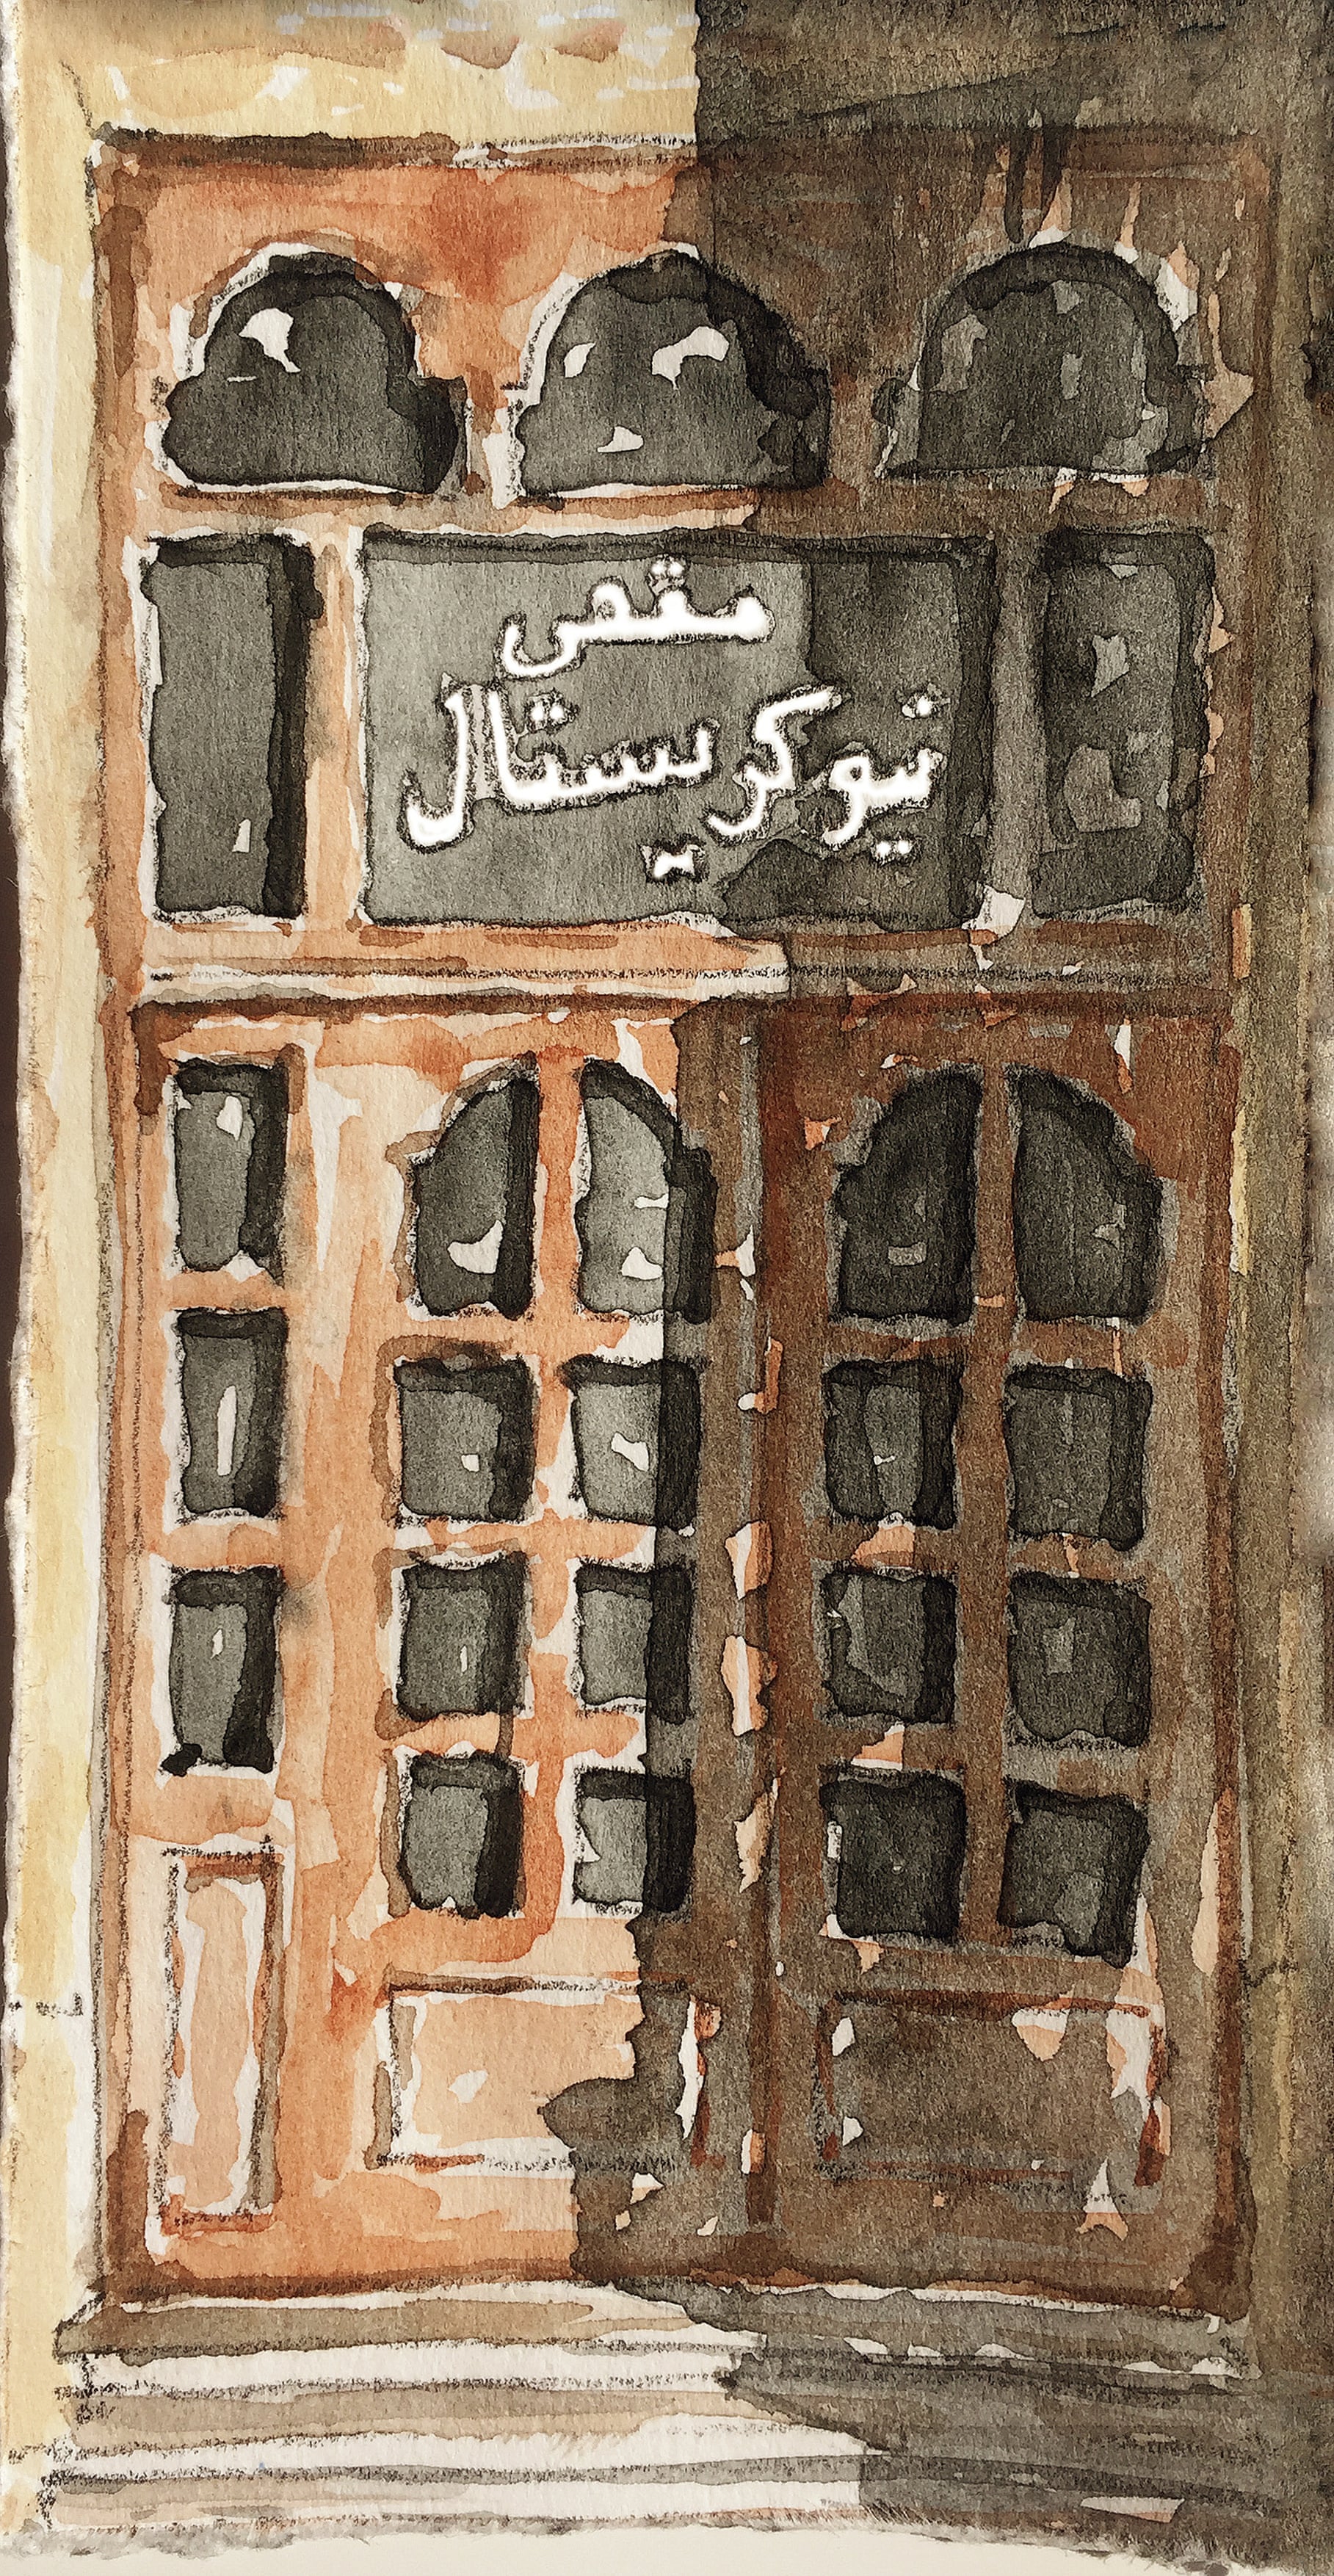 مقهى
نيوكريستال